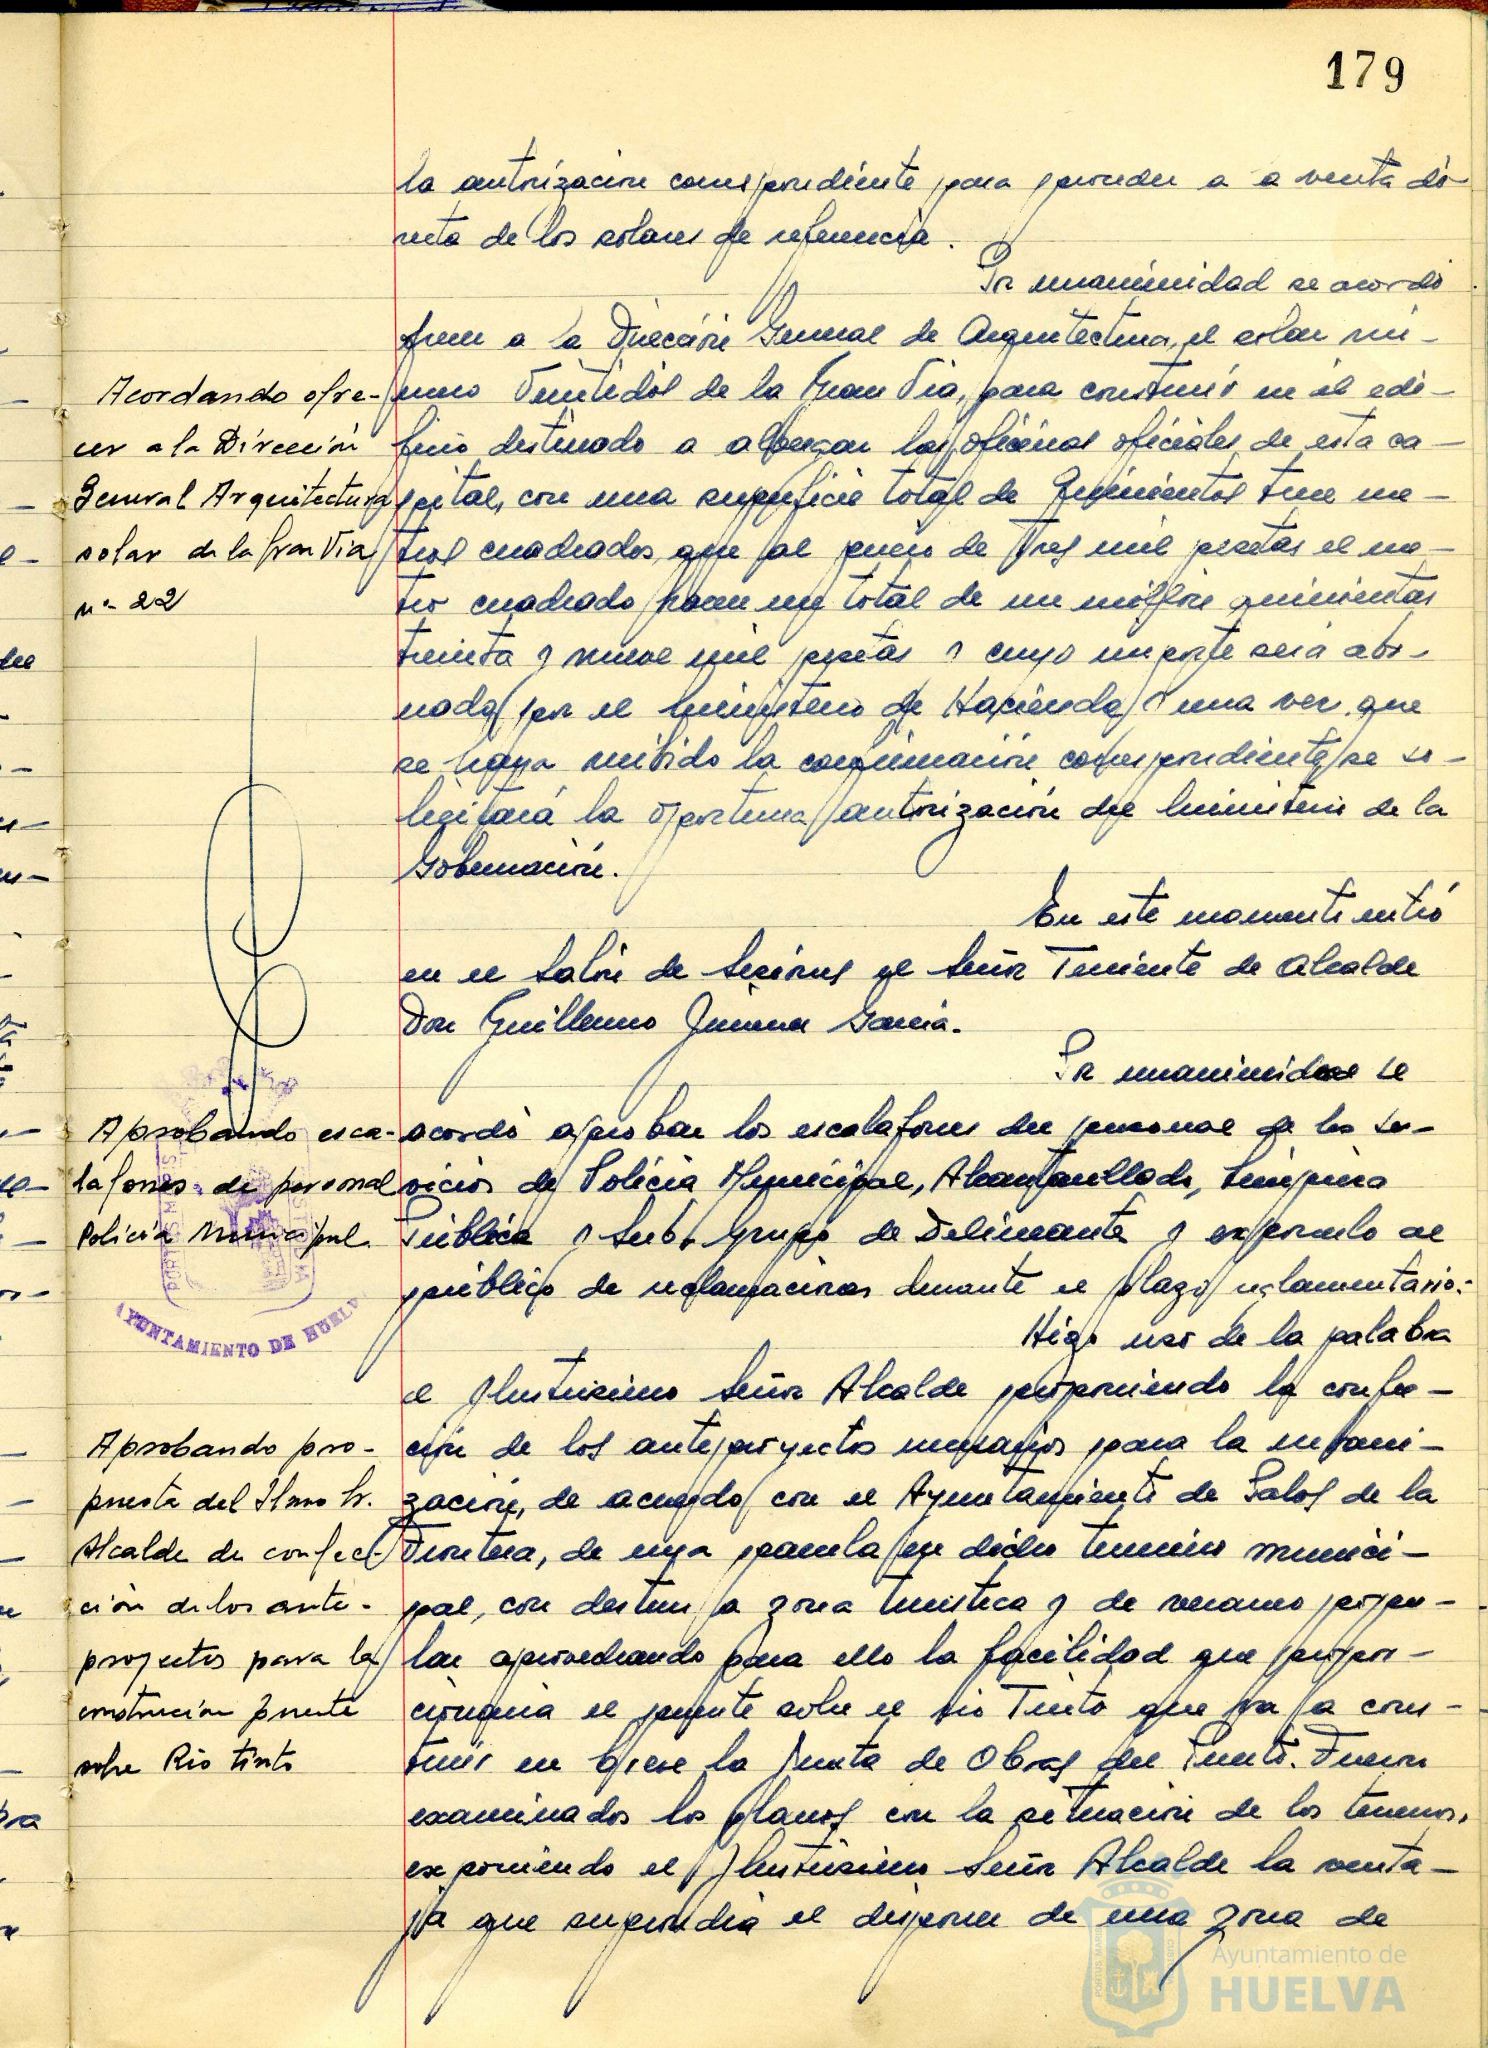 179
la autorización correspondiente para proceder a a venta di-
recta de los solares de referencia.
Por unanimidad se acordó
Acordando ofre-
cer a la Dirección
General Arquitectura
solar de la Gran Via
nº 22
ofrecer a la Dirección General de Arquitectura, el solar nú-
mero Veintidós de la Gran Via, para construir en él edi-
ficio destinado a albergar las oficinas oficiales de esta ca-
pital, con una superficie total de Quinientos trece me-
tros cuadrados, que al precio de Tres mil pesetas el me-
tro cuadrado, hacen un total de un millón quinientas
treinta y nueve mil pesetas y cuyo importe será abo-
nado por el Ministerio de Hacienda y una vez que
se haya recibido la confirmación correspondiente, se so-
licitará la oportuna autorización del Ministerio de la
Gobernación.
En este momento entró
en el Salón de Sesiones el Señor Teniente de Alcalde
Don Guillermo Jimenez García.
Por unanimidad se
Aprobando esca-
lafones de personal
Policía Municipal
acordó aprobar los escalafones del personal de los Ser-
vicios de Policía Municipal, Alcantarillado, Limpieza
Pública y Sub-Grupo de Delineante y exponerlo al
público de reclamaciones durante el plazo reglamentario.
Hizo uso de la palabra
el Ilustrisimo Señor Alcalde proponiendo la confec-
Aprobando pro-
puesta del Ilmo Sr.
Alcalde de confec-
ción de los ante-
proyectos para la
construcción puente
sobre Rio tinto
ción de los anteproyectos necesarios para la urbani-
zación, de acuerdo con el Ayuntamiento de Palos de la
Frontera, de una parcela en dicho termino munici-
pal, con destino a zona turistica y de veraneo popu-
lar aprovechando para ello la facilidad que propor-
cionaria el puente sobre el rio Tinto que va a cons-
truir en breve la Junta de Obras del Puerto. Fueron
examinados los planos con la situación de los terrenos,
exponiendo el Ilustrisimo Señor Alcalde la venta-
ja que supondria el disponer de una zona de
AYUNTAMIENTO DE HUELVA
Ayuntamiento de
HUELVA